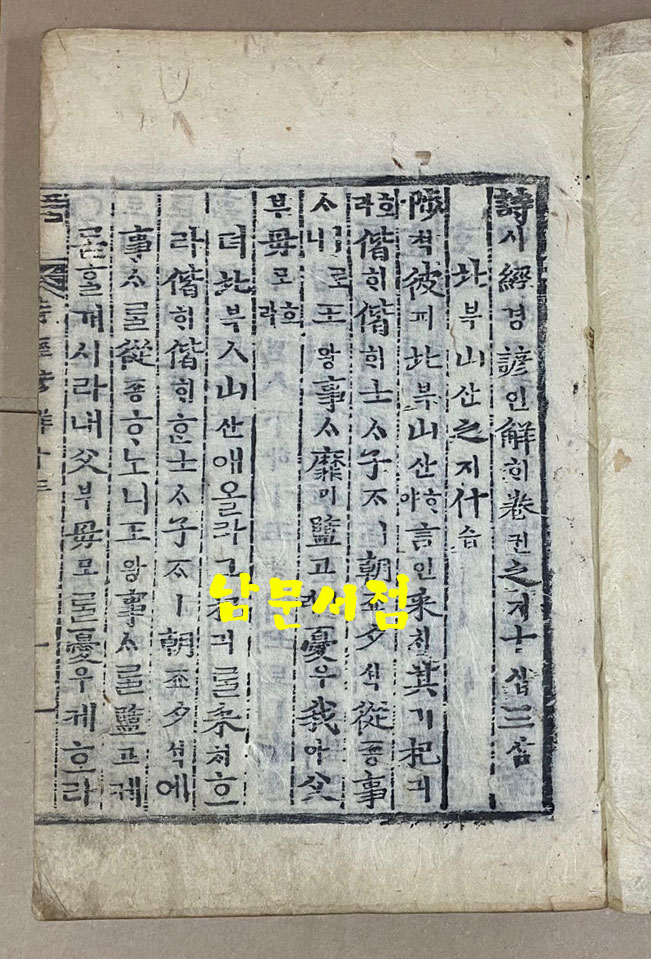 詩시經경諺언解ᄒᆡ卷권之지十십三삼
北북山산之지什습
陟쳑彼피北북山산ᄒᆞ야言언采ᄎᆡ其기杞긔
호라偕ᄒᆡ偕ᄒᆡ士ᄉᆞ子ᄌᆞㅣ朝죠夕셕從죵事
ᄉᆞㅣ로王왕事ᄉᆞ靡미盬고憂우我아父
부母모호라
뎌北북ㅅ山산애올라그杞긔ᄅᆞᆯ采ᄎᆡ호
라偕ᄒᆡ偕ᄒᆡᄒᆞᆫ士ᄉᆞ子ᄌᆞㅣ朝죠夕셕에
事ᄉᆞᄅᆞᆯ從죵ᄒᆞ노니王왕事ᄉᆞᄅᆞᆯ盬고케
몯ᄒᆞᆯ께시라내父부母모ᄅᆞᆯ憂우케호라
詩經諺解十三
남문서점